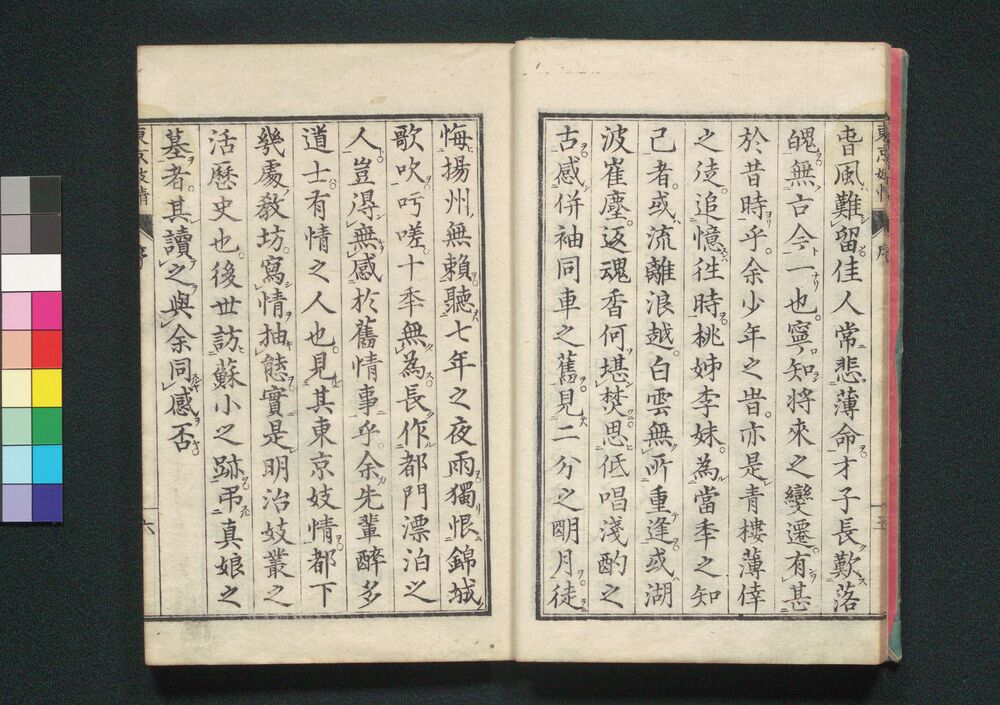 東京妓情 序 五
香風難留佳人常悲薄命才子長歎落
魄無古今一也寧知將來之變遷有甚
於昔時乎余少年之昔亦是青樓薄倖
之徒追憶往時桃姊李妹為當年之知
己者或流離浪越白雲無所重逢或湖
波崔塵返魂香何堪焚思低唱淺酌之
古感併袖同車之舊見二分之明月徒
悔揚州無賴聽七年之夜雨獨恨錦城
歌吹吁嗟十年無為長作都門漂泊之
人豈得無感於舊情事乎余先輩醉多
道士有情之人也見其東京妓情都下
幾處教坊寫情抽態實是明治妓叢之
活歷史也後世訪蘇小之跡弔真娘之
墓者其讀之與余同感否
東京妓情 序 六